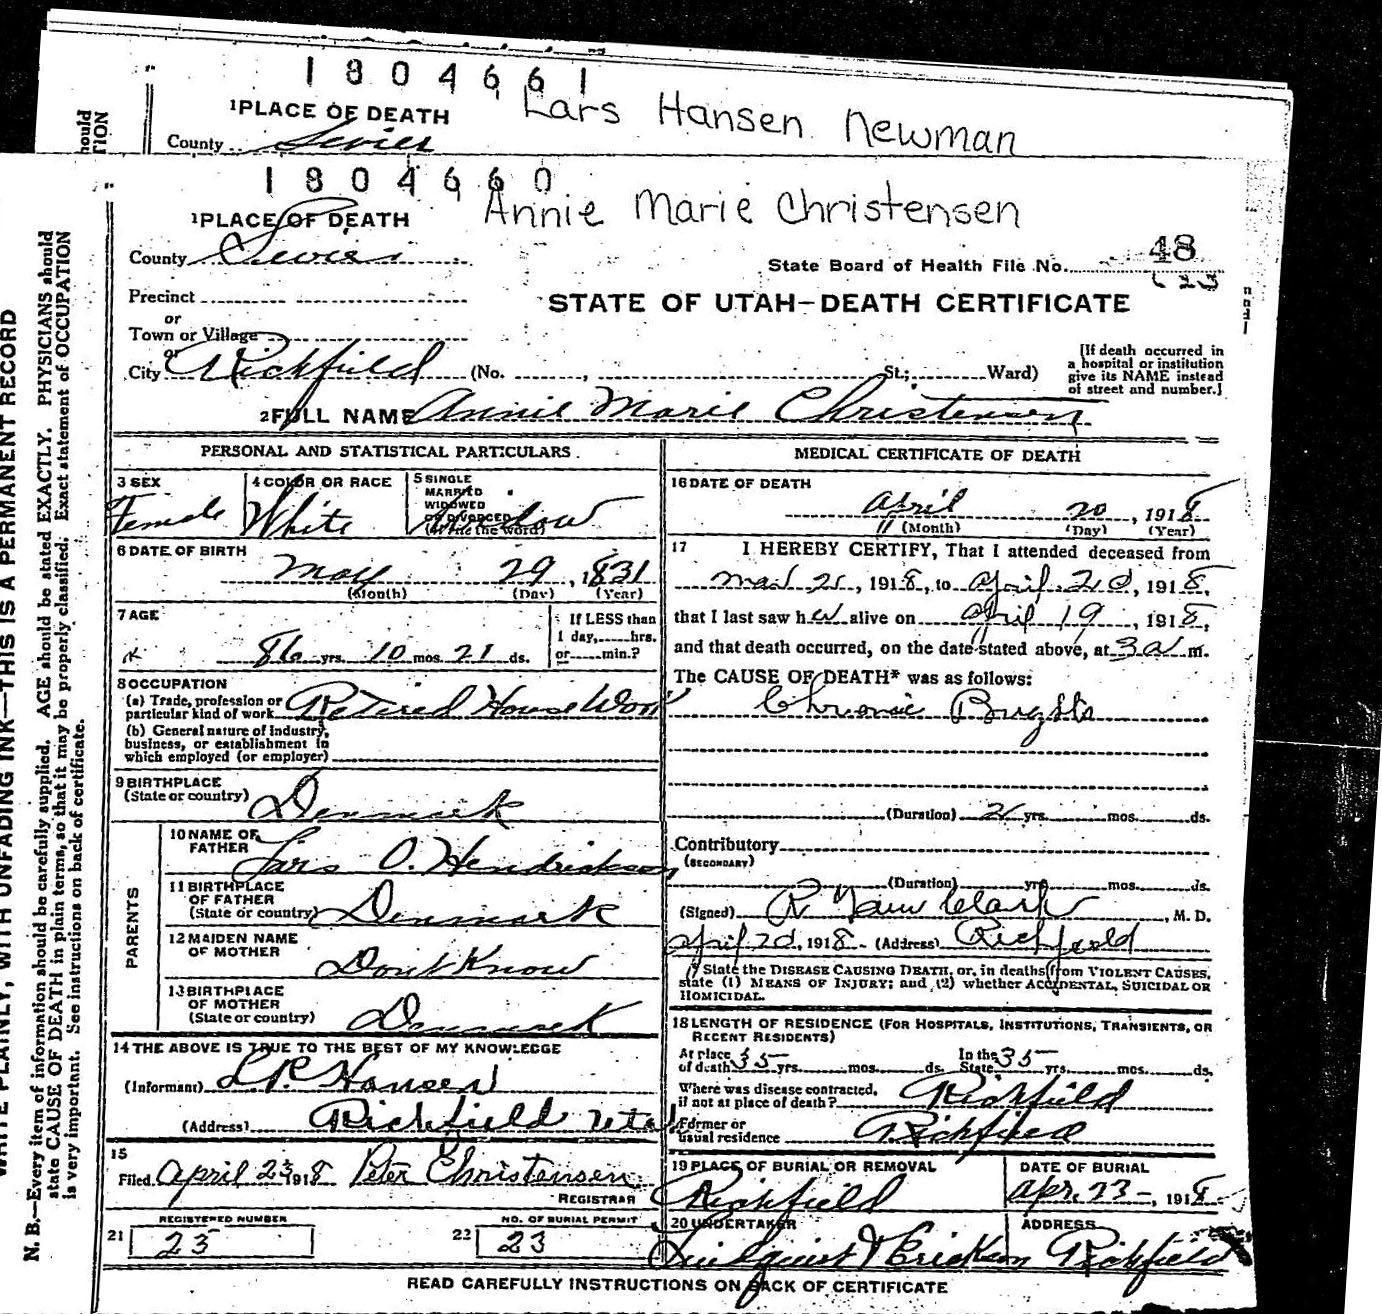 1804661
1 PLACE OF DEATH Lars Hansen Newman
County Sevier
1804660
1 PLACE OF DEATH Annie Marie Christensen
County Sevier
State Board of Health File No. 48
Precinct
STATE OF UTAH—DEATH CERTIFICATE
or
Town or Village
or
City Richfield (No. , St.; Ward)
[If death occurred in
a hospital or institution
give its NAME instead
of street and number.]
2 FULL NAME Annie Marie Christensen
PERSONAL AND STATISTICAL PARTICULARS
3 SEX
Female
4 COLOR OR RACE
White
5 SINGLE
MARRIED
WIDOWED
OR DIVORCED
(Write the word)
Widow
6 DATE OF BIRTH
May 29, 1831
(Month) (Day) (Year)
7 AGE
86 yrs. 10 mos. 21 ds.
If LESS than
1 day, hrs.
or min.?
8 OCCUPATION
(a) Trade, profession or
particular kind of work Retired House Work
(b) General nature of industry,
business, or establishment in
which employed (or employer)
9 BIRTHPLACE
(State or country) Denmark
PARENTS
10 NAME OF
FATHER Lars O. Hendrickson
11 BIRTHPLACE
OF FATHER
(State or country) Denmark
12 MAIDEN NAME
OF MOTHER Dont Know
13 BIRTHPLACE
OF MOTHER
(State or country) Denmark
14 THE ABOVE IS TRUE TO THE BEST OF MY KNOWLEDGE
(Informant) L.P. Hansen
(Address) Richfield Utah
15
Filed April 23 1918 Peter Christensen
REGISTRAR
REGISTERED NUMBER
21 23
NO. OF BURIAL PERMIT
22 23
MEDICAL CERTIFICATE OF DEATH
16 DATE OF DEATH
April 20, 1918
(Month) (Day) (Year)
17 I HEREBY CERTIFY, That I attended deceased from
1918, to April 20, 1918,
that I last saw her alive on April 19, 1918,
and that death occurred, on the date stated above, at 3 a m.
The CAUSE OF DEATH* was as follows:
Chronic Brights
(Duration) yrs. mos. ds.
Contributory
(SECONDARY)
(Duration) yrs. mos. ds.
(Signed) R Clark, M. D.
April 20, 1918 (Address) Richfield
State the DISEASE CAUSING DEATH, or, in deaths from VIOLENT CAUSES,
state (1) MEANS OF INJURY; and (2) whether ACCIDENTAL, SUICIDAL OR
HOMICIDAL.
18 LENGTH OF RESIDENCE (FOR HOSPITALS, INSTITUTIONS, TRANSIENTS, OR
RECENT RESIDENTS)
At place of death 35 yrs. mos. ds. In the State 35 yrs. mos. ds.
Where was disease contracted,
if not at place of death? Richfield
Former or
usual residence Richfield
19 PLACE OF BURIAL OR REMOVAL
Richfield
DATE OF BURIAL
Apr. 23, 1918
20 UNDERTAKER
Lindquist & Erickson
ADDRESS
Richfield
READ CAREFULLY INSTRUCTIONS ON BACK OF CERTIFICATE
WRITE PLAINLY, WITH UNFADING INK—THIS IS A PERMANENT RECORD
N. B.—Every item of information should be carefully supplied. AGE should be stated EXACTLY. PHYSICIANS should
state CAUSE OF DEATH in plain terms, so that it may be properly classified. Exact statement of OCCUPATION
is very important. See instructions on back of certificate.